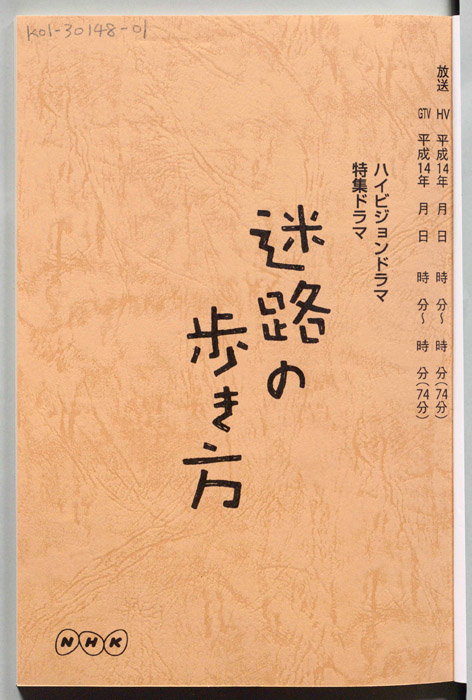 K01-30148-01
放送 HV 平成14年 月 日 時 分〜 時 分(74分)
GTV 平成14年 月 日 時 分〜 時 分(74分)
ハイビジョンドラマ
特集ドラマ
迷路の
歩き方
NHK